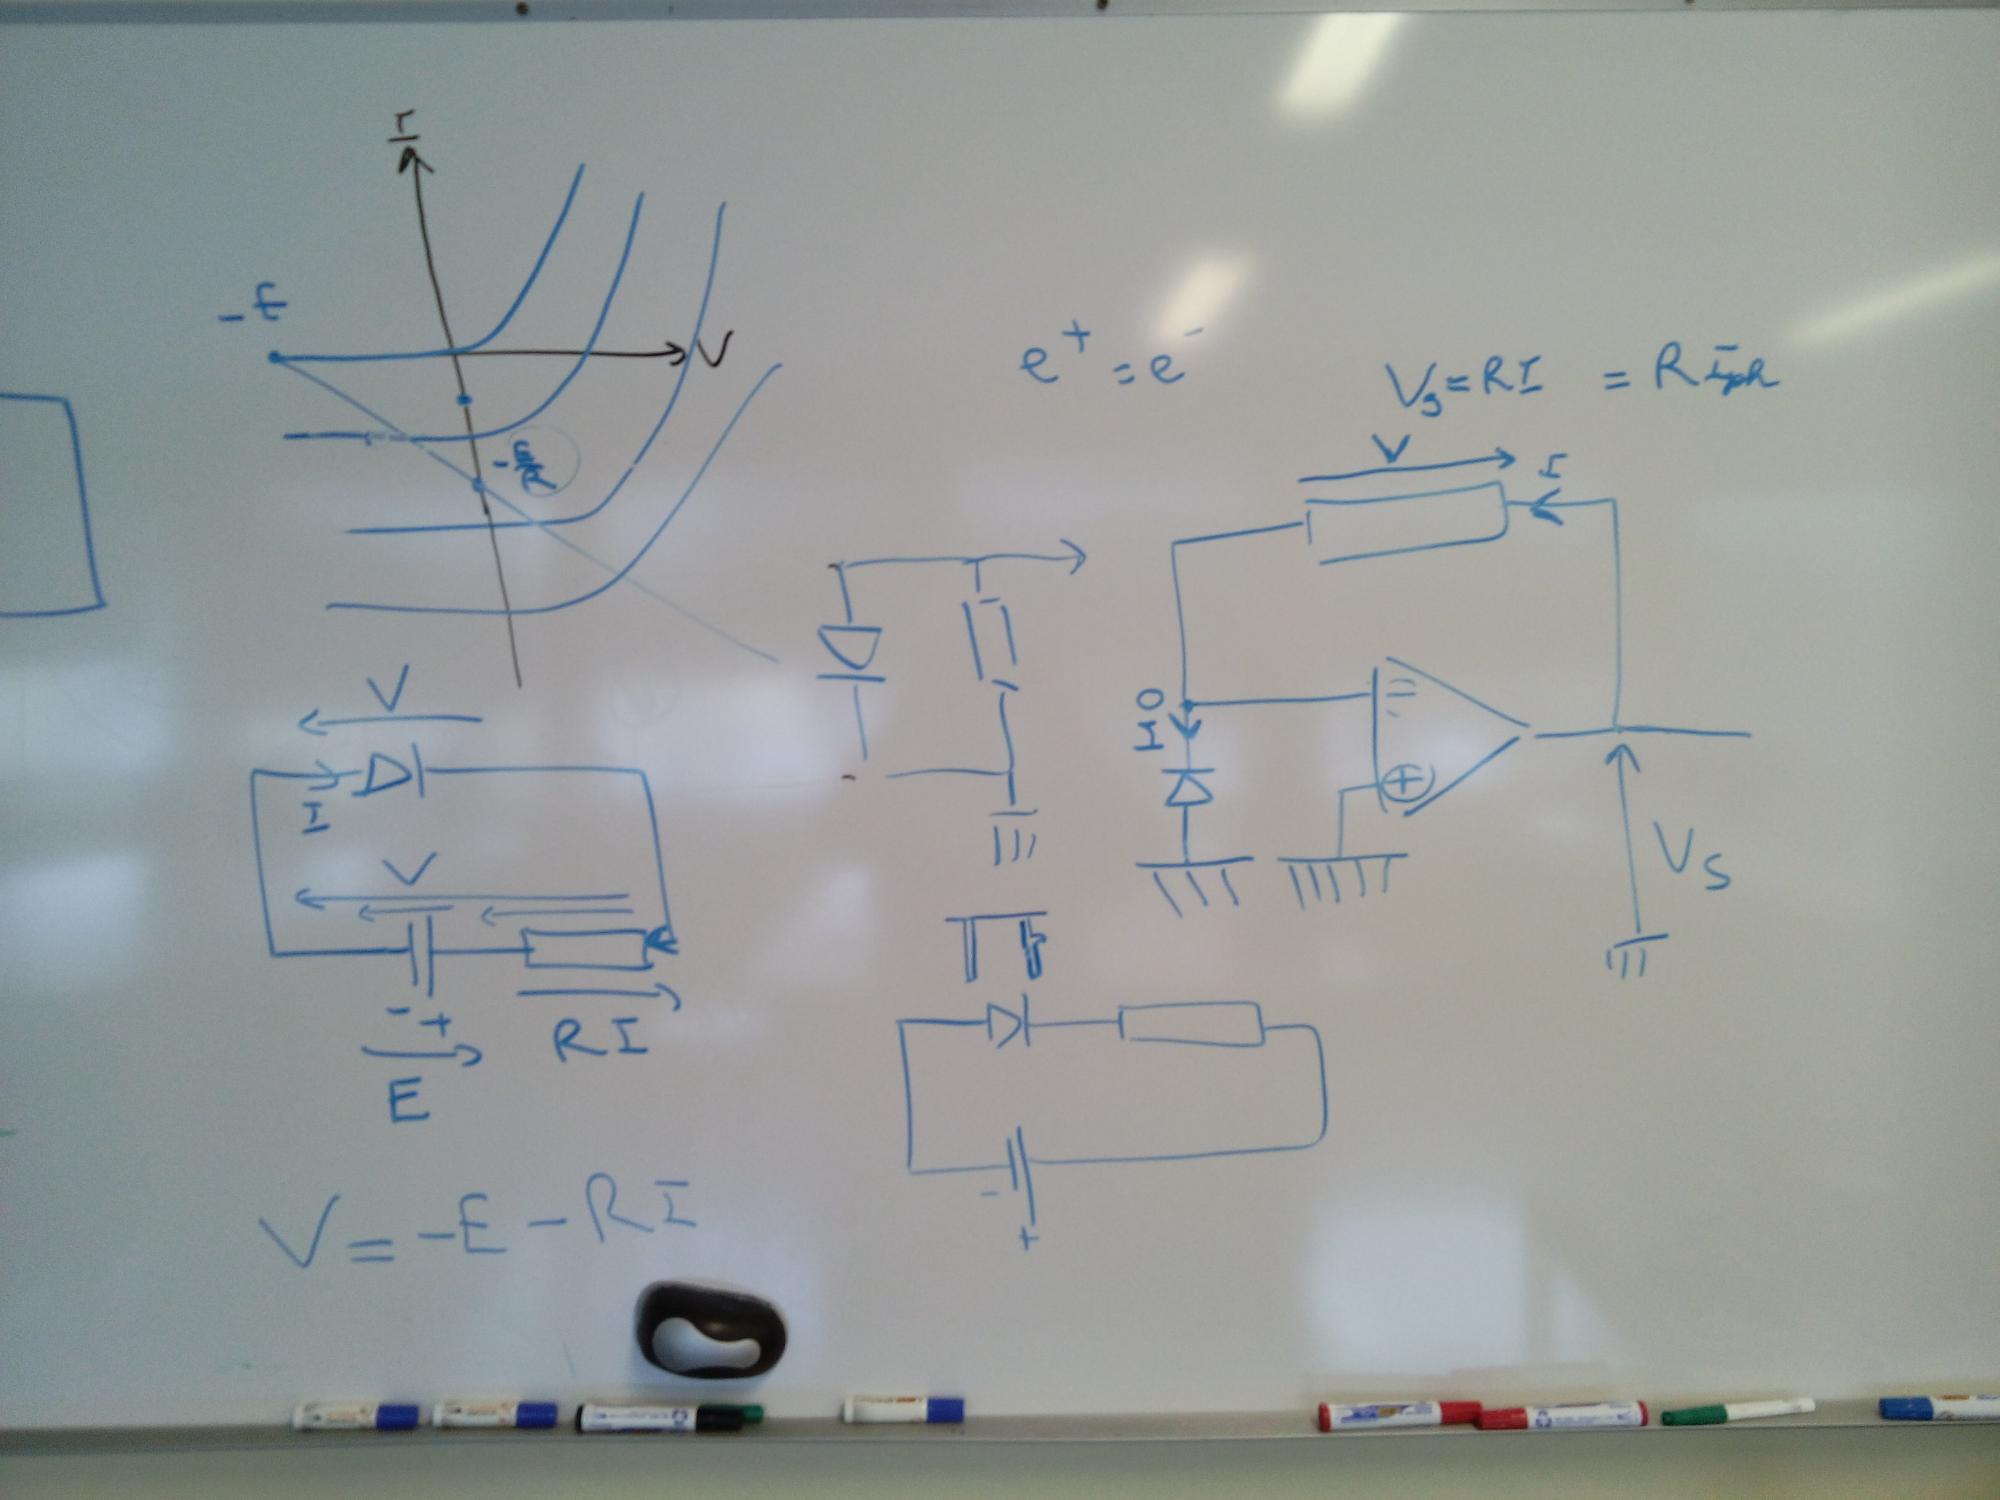 I
-E
V
-E/R
e⁺ = e⁻
Vs = RI = R Iph
V
I
V
I
V
- +
E
RI
V = -E - RI
0
I
-
+
Vs
-
+